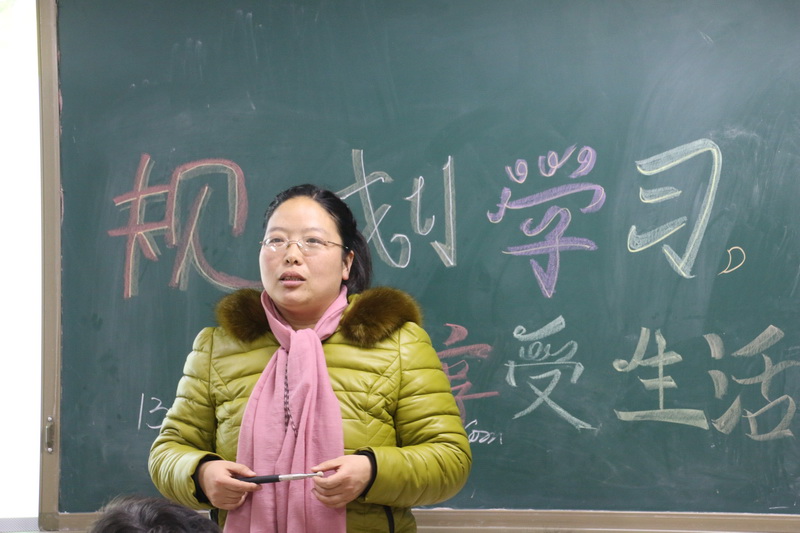 规划学习，
享受生活
13
com